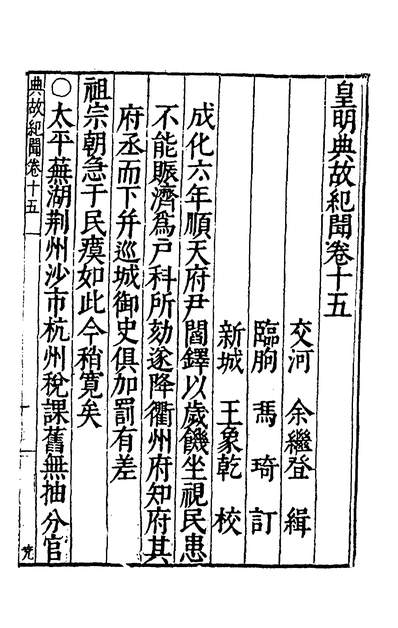 皇明典故紀聞卷十五
交河 余繼登 緝
臨朐 馮琦 訂
新城 王象乾 校
成化六年順天府尹閻鐸以歲饑坐視民患
不能賑濟為戶科所劾遂降衢州府知府其
府丞而下并巡城御史俱加罰有差
祖宗朝急于民瘼如此今稍寬矣
○太平蕪湖荆州沙市杭州稅課舊無抽分官
典故紀聞卷十五